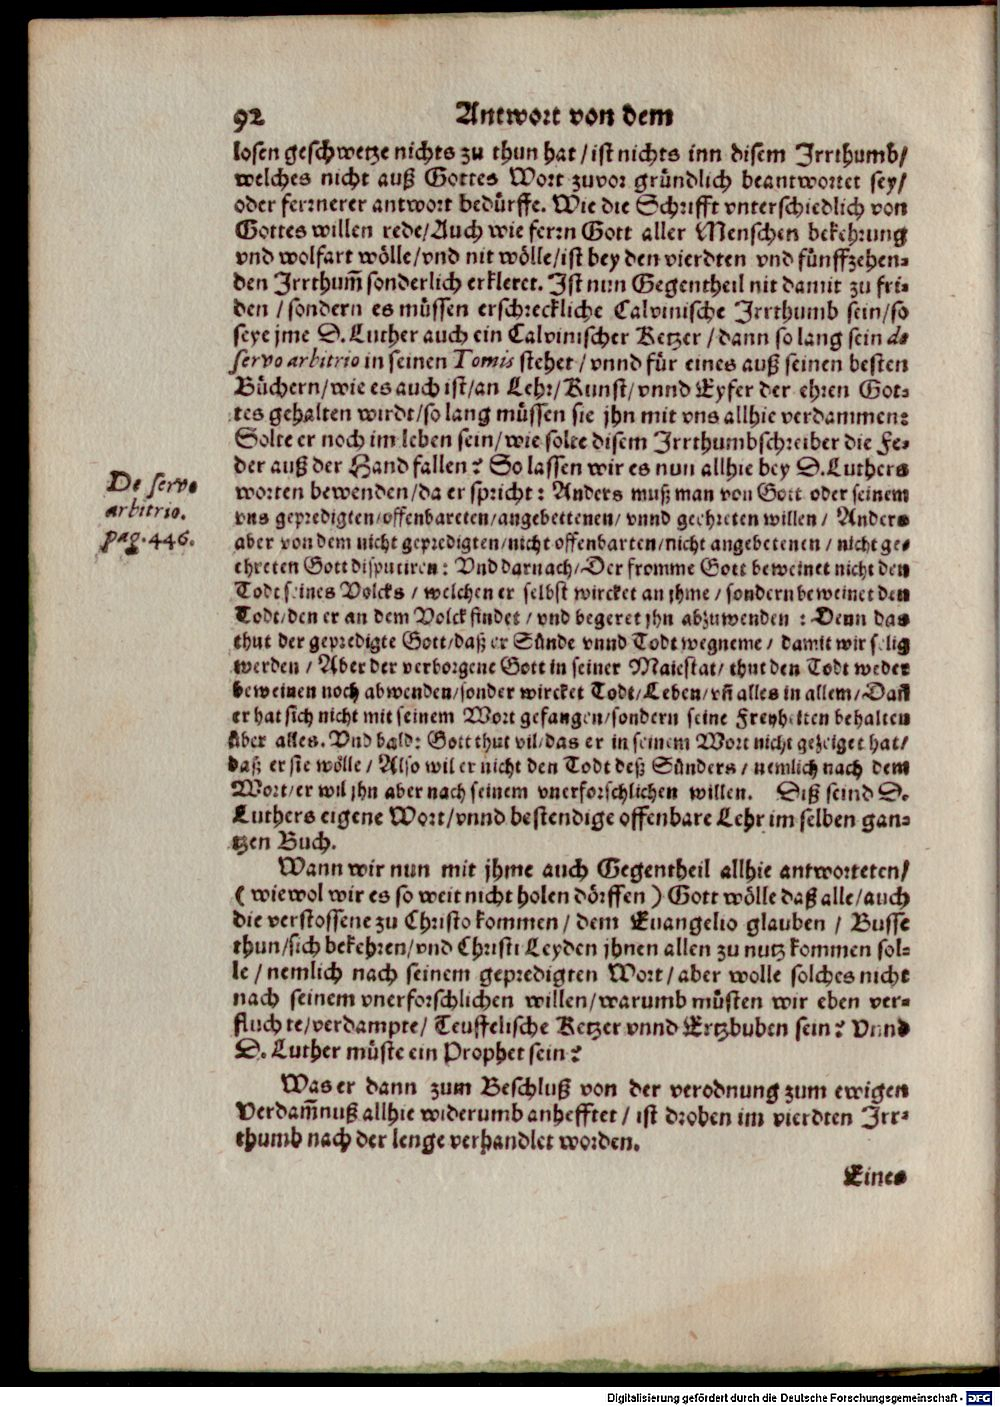 92 Antwort von dem
losen geschwetze nichts zu thun hat / ist nichts inn disem Irrthumb/
welches nicht auß Gottes Wort zuvor gründlich beantwortet sey/
oder ferrnerer antwort bedürffe. Wie die Schrifft vnterschiedlich von
Gottes willen rede/Auch wie ferrn Gott aller Menschen bekehrung
vnd wolfart wölle/vnd nit wölle/ist bey den vierdten vnd fünffzehen=
den Irrthum̃ sonderlich erkleret. Ist nun Gegentheil nit damit zu fri=
den / sondern es müssen erschreckliche Calvinische Irrthumb sein/so
seye jme D. Luther auch ein Calvinischer Ketzer / dann so lang sein de
servo arbitrio in seinen Tomis stehet / vnnd für eines auß seinen besten
Büchern/wie es auch ist/an Lehr/Kunst/vnnd Eyfer der ehren Got=
tes gehalten wirdt/so lang müssen sie jhn mit vns allhie verdammen:
Solte er noch im leben sein/wie solte disem Irrthumbschreiber die Fe=
der auß der Hand fallen? So lassen wir es nun allhie bey D. Luthers
De servo
arbitrio.
pag. 446.
worten bewenden/da er spricht: Anders muß man von Gott oder seinem
vns gepredigten/offenbareten/angebettenen/vnnd geehreten willen/ Anders
aber von dem nicht gepredigten/nicht offenbarten/nicht angebetenen / nicht ge=
ehreten Gott disputiren: Vnd darnach/Der fromme Gott beweinet nicht den
Todt seines Volcks / welchen er selbst wircket an jhme / sondern beweinet den
Todt/den er an dem Volck findet / vnd begeret jhn abzuwenden : Denn das
thut der gepredigte Gott/daß er Sünde vnnd Todt wegneme / damit wir selig
werden / Aber der verborgene Gott in seiner Maiestat/ thut den Todt weder
beweinen noch abwenden/sonder wircket Todt/Leben/vñ alles in allem/Dañ
er hat sich nicht mit seinem Wort gefangen/sondern seine Freyheiten behalten
über alles. Vnd bald: Gott thut vil/das er in seinem Wort nicht gezeiget hat/
daß er sie wölle / Also wil er nicht den Todt deß Sünders / nemlich nach dem
Wort/er wil jhn aber nach seinem vnerforschlichen willen. Diß seind D.
Luthers eigene Wort/vnnd bestendige offenbare Lehr im selben gan=
tzen Buch.
Wann wir nun mit jhme auch Gegentheil allhie antworteten/
( wiewol wir es so weit nicht holen dörffen ) Gott wölle daß alle/auch
die verstossene zu Christo kommen / dem Euangelio glauben / Busse
thun/sich bekehren/vnd Christi Leyden jhnen allen zu nutz kommen sol=
le / nemlich nach seinem gepredigten Wort / aber wolle solches nicht
nach seinem vnerforschlichen willen/warumb müsten wir eben ver=
fluchte/verdampte/ Teuffelische Ketzer vnnd Ertzbuben sein? Vnnd
D. Luther müste ein Prophet sein?
Was er dann zum Beschluß von der verodnung zum ewigen
Verdam̃nuß allhie widerumb anhefftet / ist droben im vierdten Irr=
thumb nach der lenge verhandlet worden.
Eines
Digitalisierung gefördert durch die Deutsche Forschungsgemeinschaft - DFG